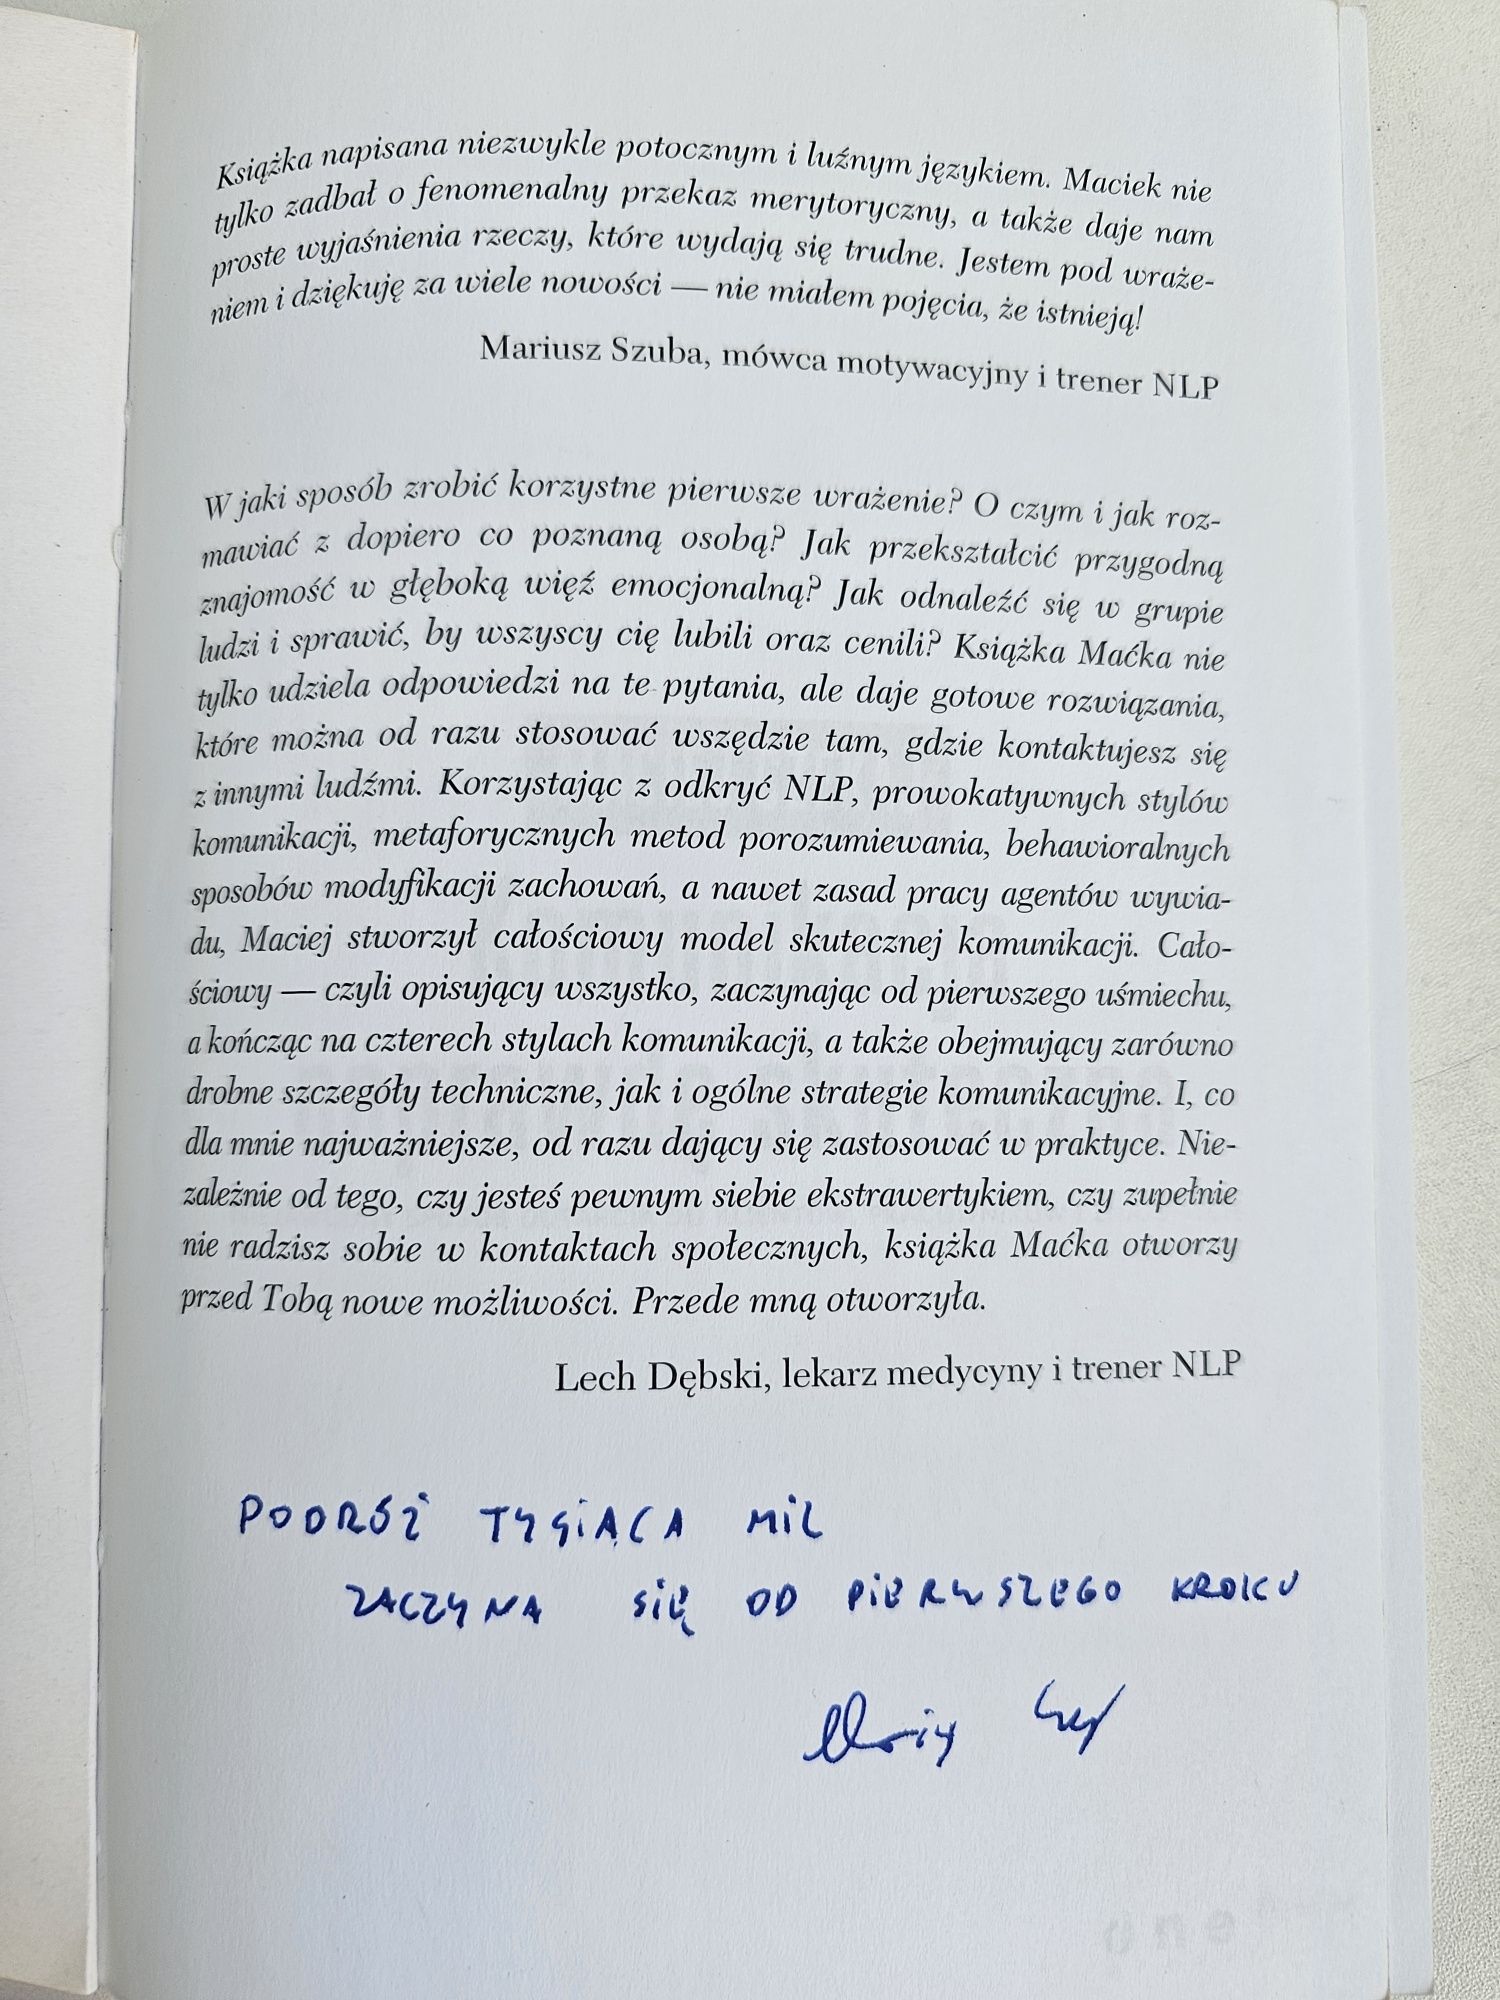 Książka napisana niezwykle potocznym i luźnym językiem. Maciek nie
tylko zadbał o fenomenalny przekaz merytoryczny, a także daje nam
proste wyjaśnienia rzeczy, które wydają się trudne. Jestem pod wraże-
niem i dziękuję za wiele nowości — nie miałem pojęcia, że istnieją!
Mariusz Szuba, mówca motywacyjny i trener NLP
W jaki sposób zrobić korzystne pierwsze wrażenie? O czym i jak roz-
mawiać z dopiero co poznaną osobą? Jak przekształcić przygodną
znajomość w głęboką więź emocjonalną? Jak odnaleźć się w grupie
ludzi i sprawić, by wszyscy cię lubili oraz cenili? Książka Maćka nie
tylko udziela odpowiedzi na te pytania, ale daje gotowe rozwiązania,
które można od razu stosować wszędzie tam, gdzie kontaktujesz się
z innymi ludźmi. Korzystając z odkryć NLP, prowokatywnych stylów
komunikacji, metaforycznych metod porozumiewania, behawioralnych
sposobów modyfikacji zachowań, a nawet zasad pracy agentów wywia-
du, Maciej stworzył całościowy model skutecznej komunikacji. Cało-
ściowy — czyli opisujący wszystko, zaczynając od pierwszego uśmiechu,
a kończąc na czterech stylach komunikacji, a także obejmujący zarówno
drobne szczegóły techniczne, jak i ogólne strategie komunikacyjne. I, co
dla mnie najważniejsze, od razu dający się zastosować w praktyce. Nie-
zależnie od tego, czy jesteś pewnym siebie ekstrawertykiem, czy zupełnie
nie radzisz sobie w kontaktach społecznych, książka Maćka otworzy
przed Tobą nowe możliwości. Przede mną otworzyła.
Lech Dębski, lekarz medycyny i trener NLP
PODRÓŻ TYSIĄCA MIL
ZACZYNA SIĘ OD PIERWSZEGO KROKU